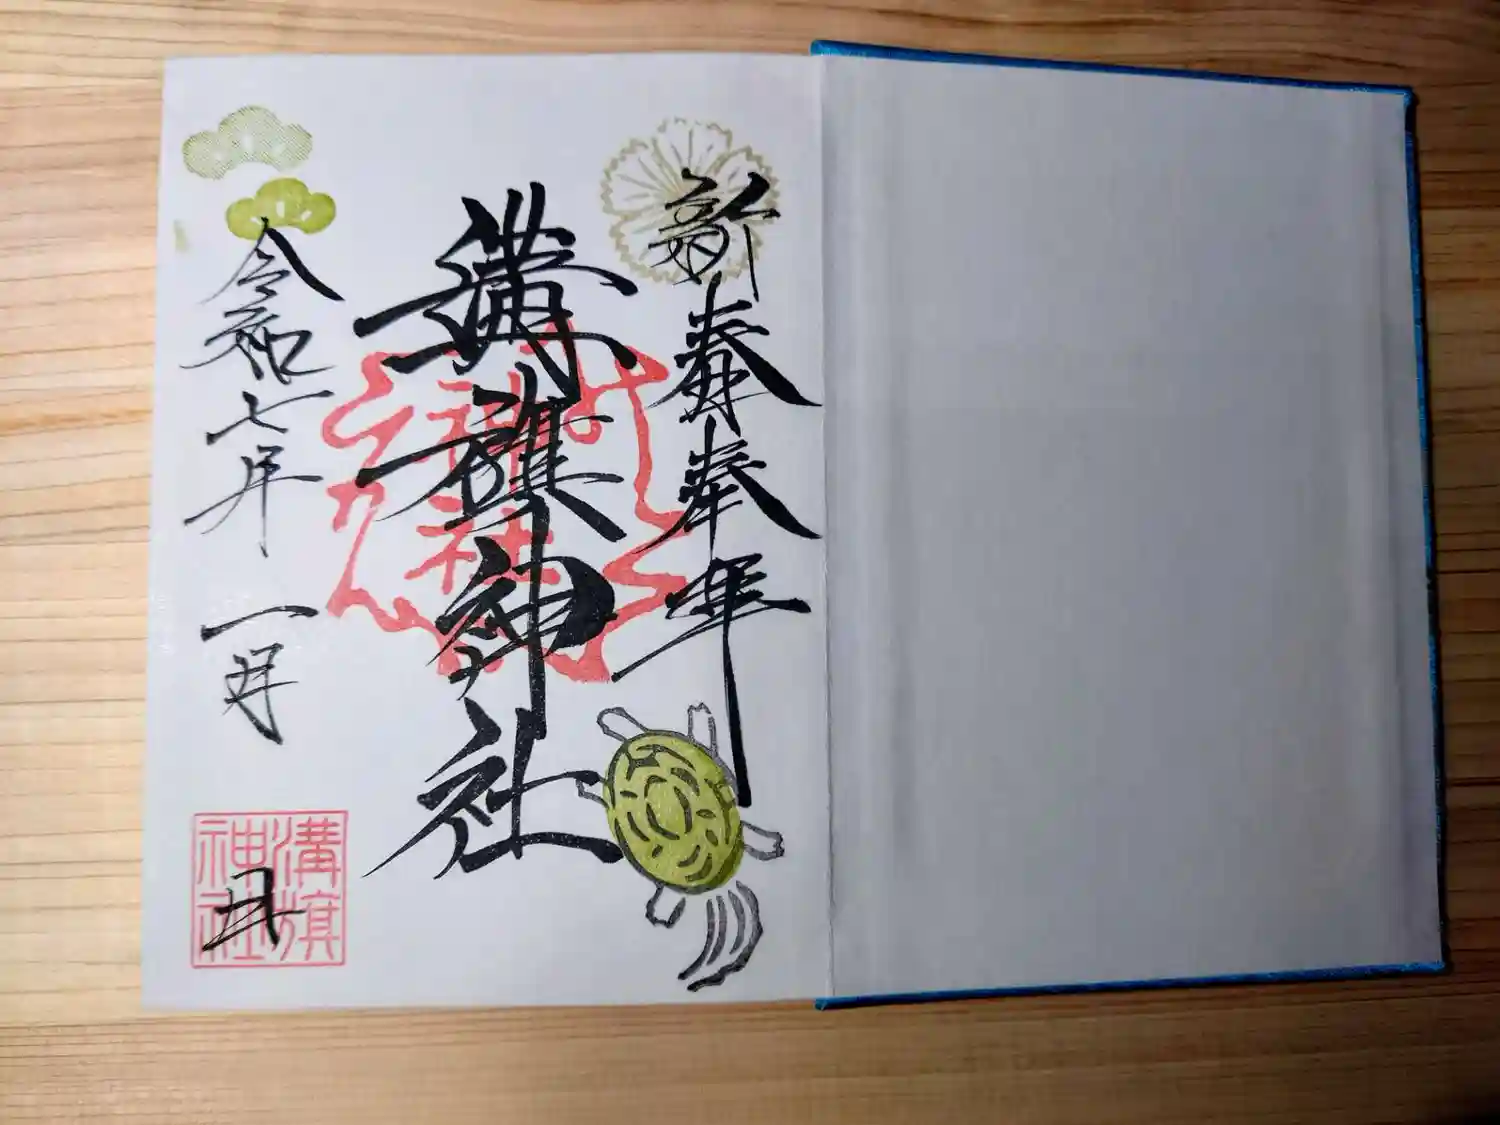 新春奉拝
溝旗神社
令和七年 一月 日
溝旗
神社